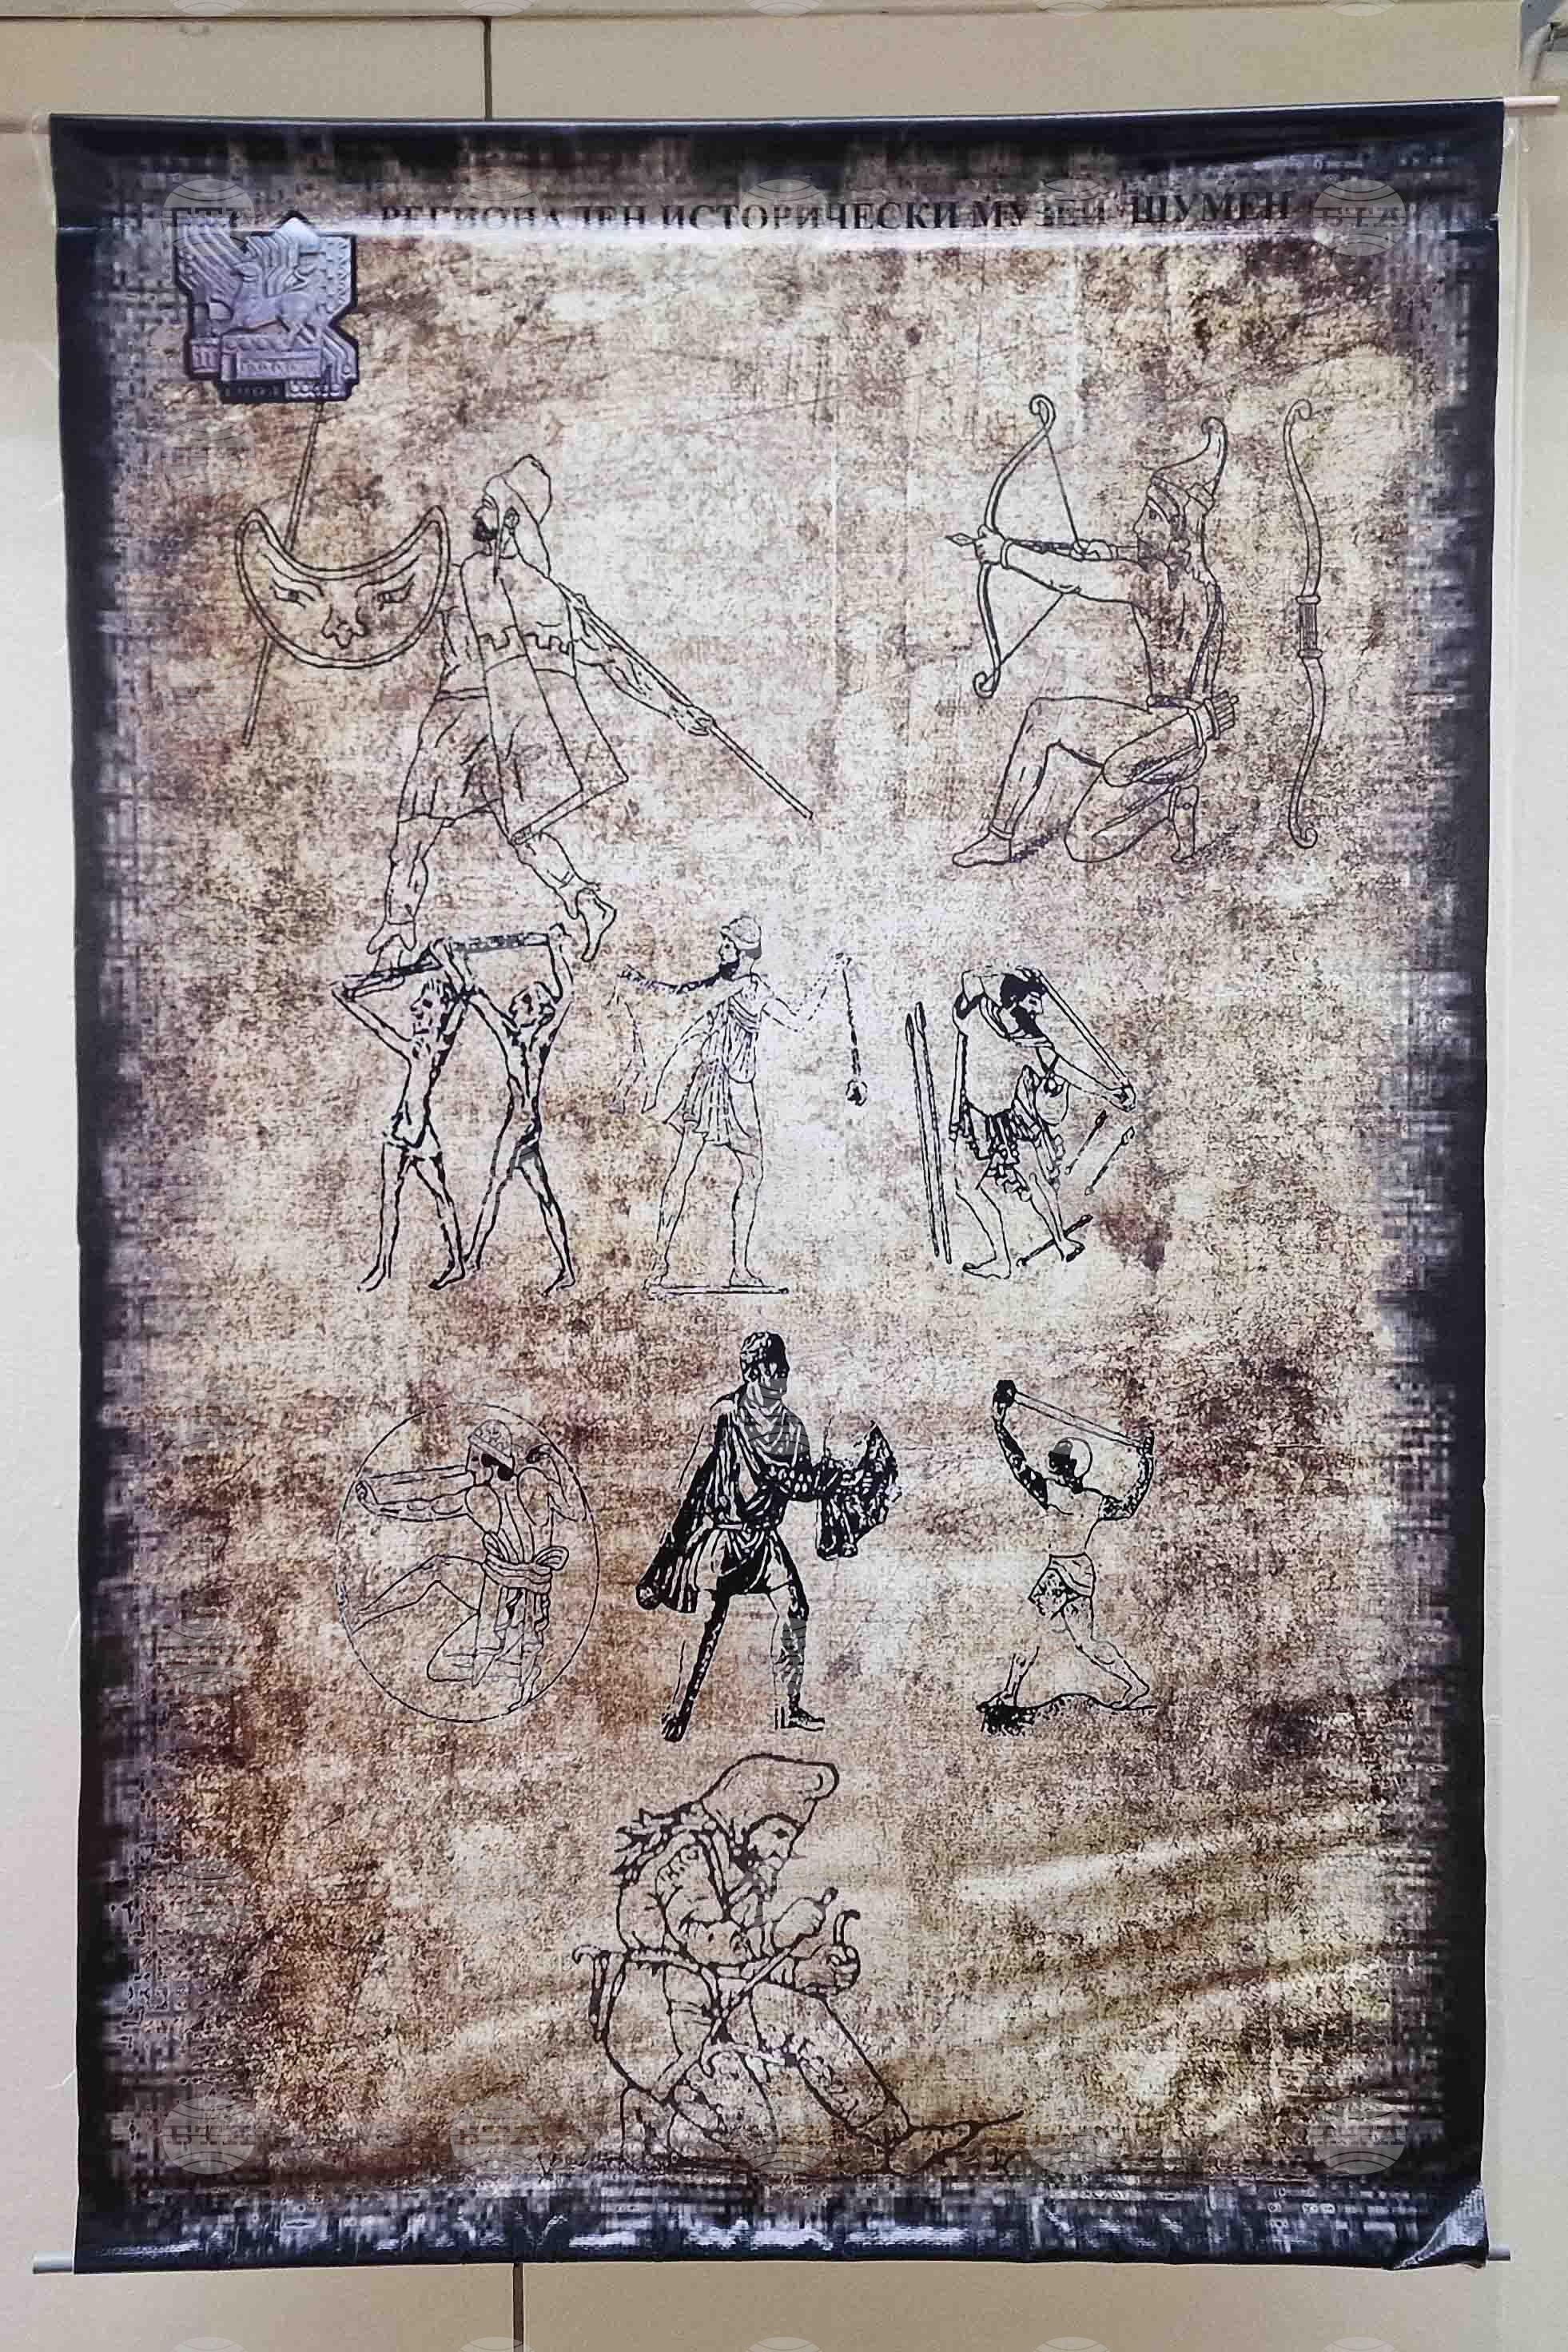 РЕГИОНАЛЕН ИСТОРИЧЕСКИ МУЗЕЙ ШУМЕН
БТА